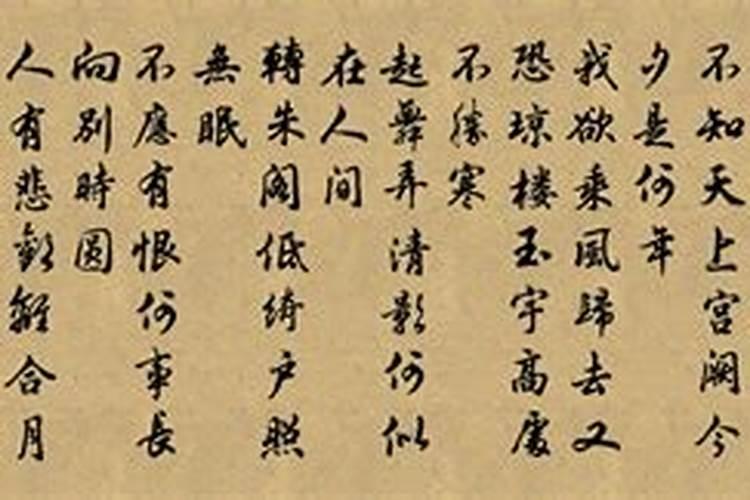 不知天上宮闕今
夕是何年
我欲乘風歸去又
恐琼楼玉宇高處
不勝寒
起舞弄清影何似
在人间
轉朱阁低绮户照
無眠
不應有恨何事長
向别時圆
人有悲歡離合月